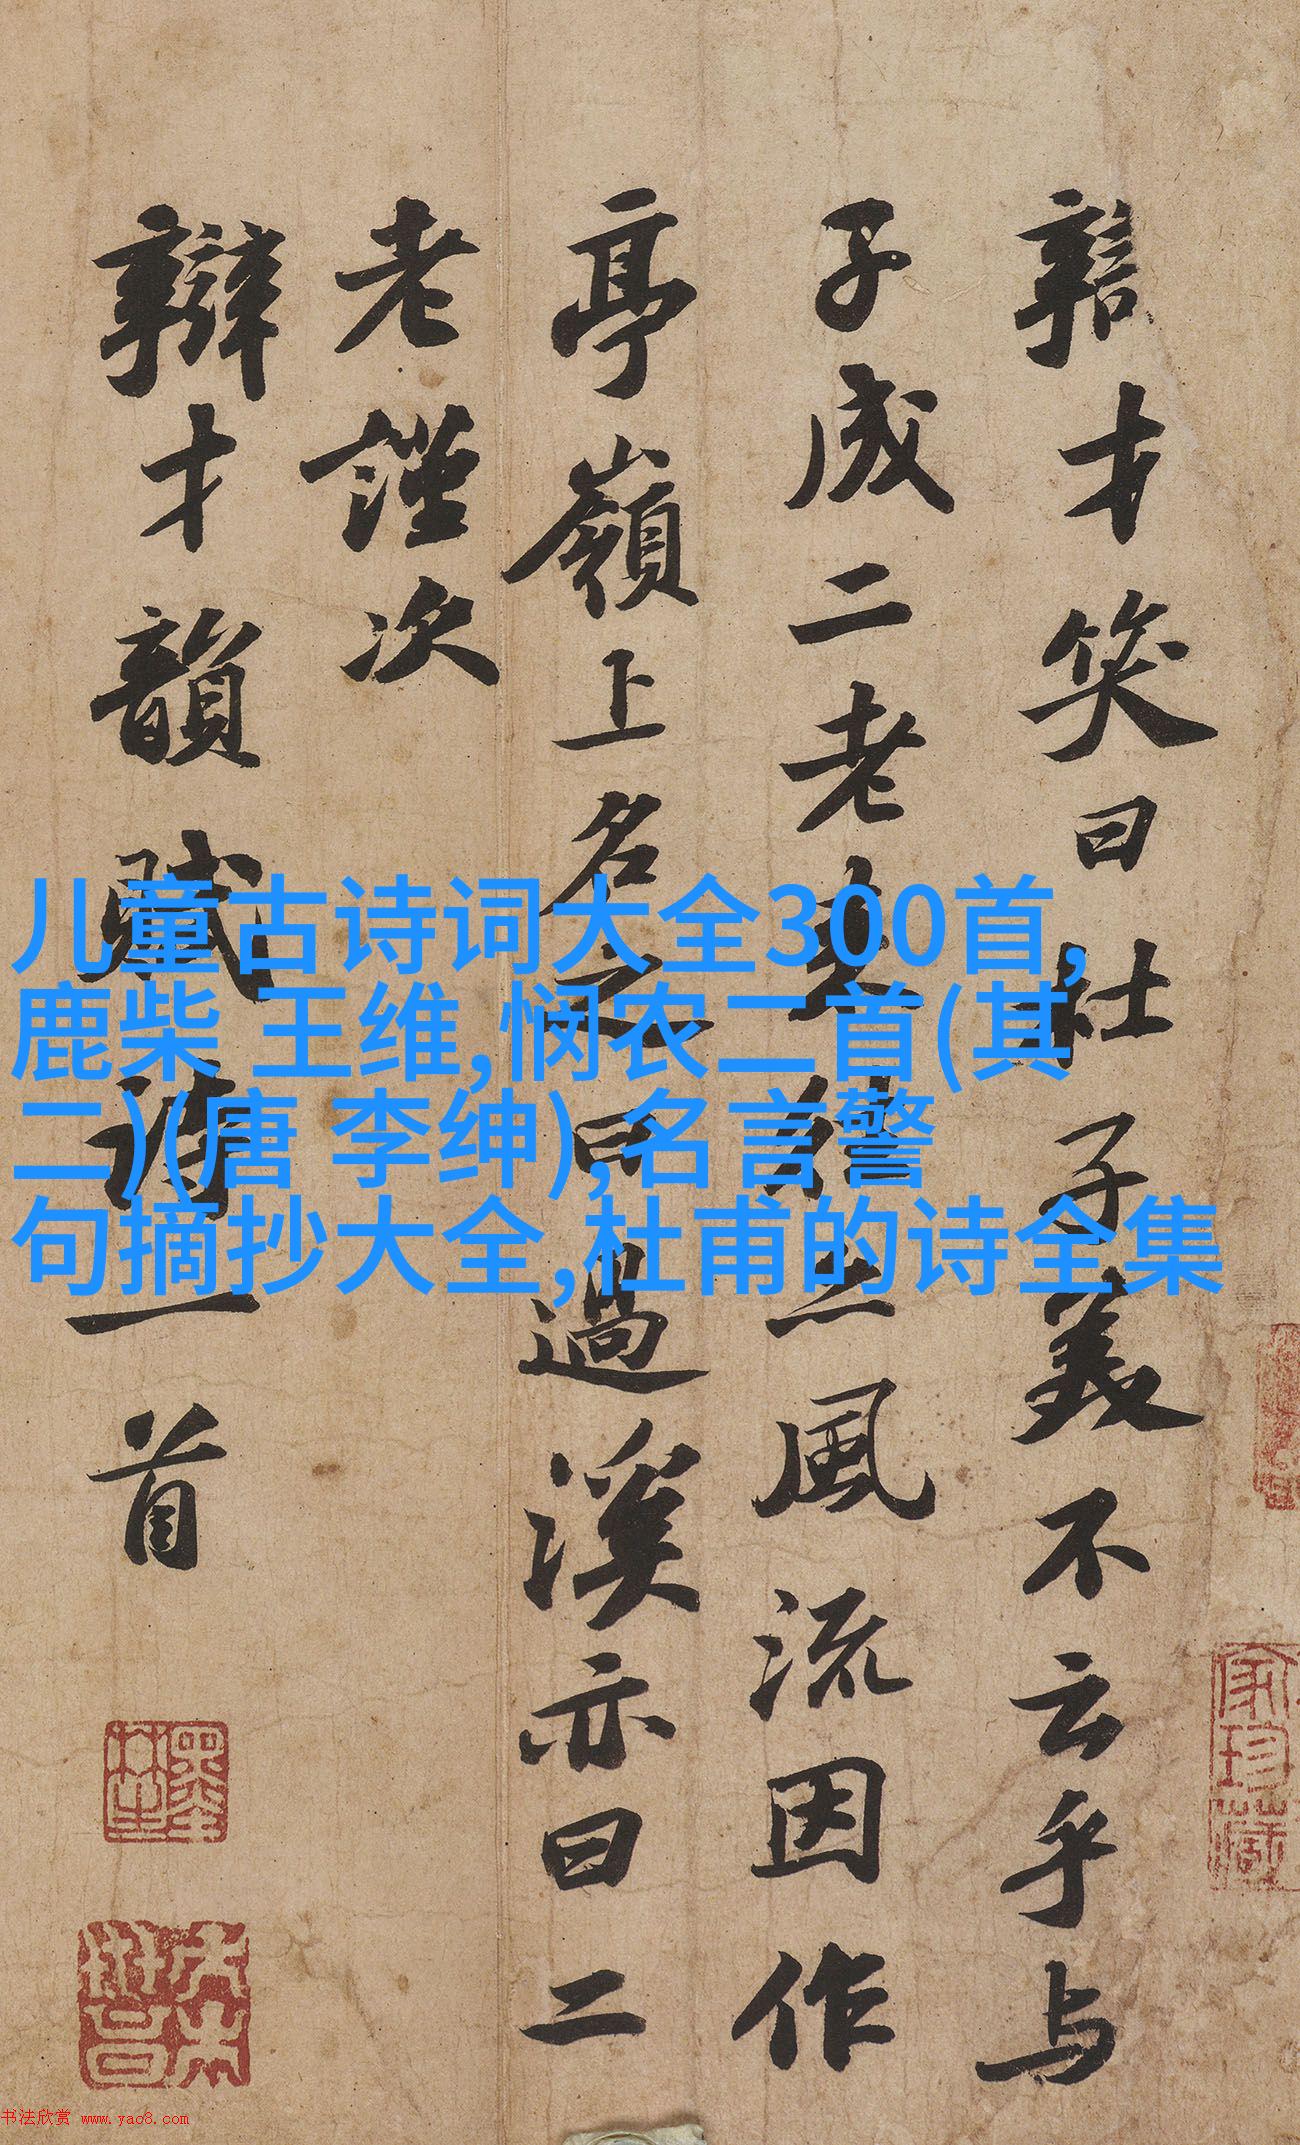 辯才笑曰杜子美不云乎与
子成二老來往亦風流因作
亭嶺上名之曰過溪亦曰二
老謹次
辯才韻賦詩一首
儿童古诗词大全300首,
鹿柴 王维,悯农二首(其
二)(唐 李绅),名言警
句摘抄大全,杜甫的诗全集
家珍藏
书法欣赏 www.yac8.com